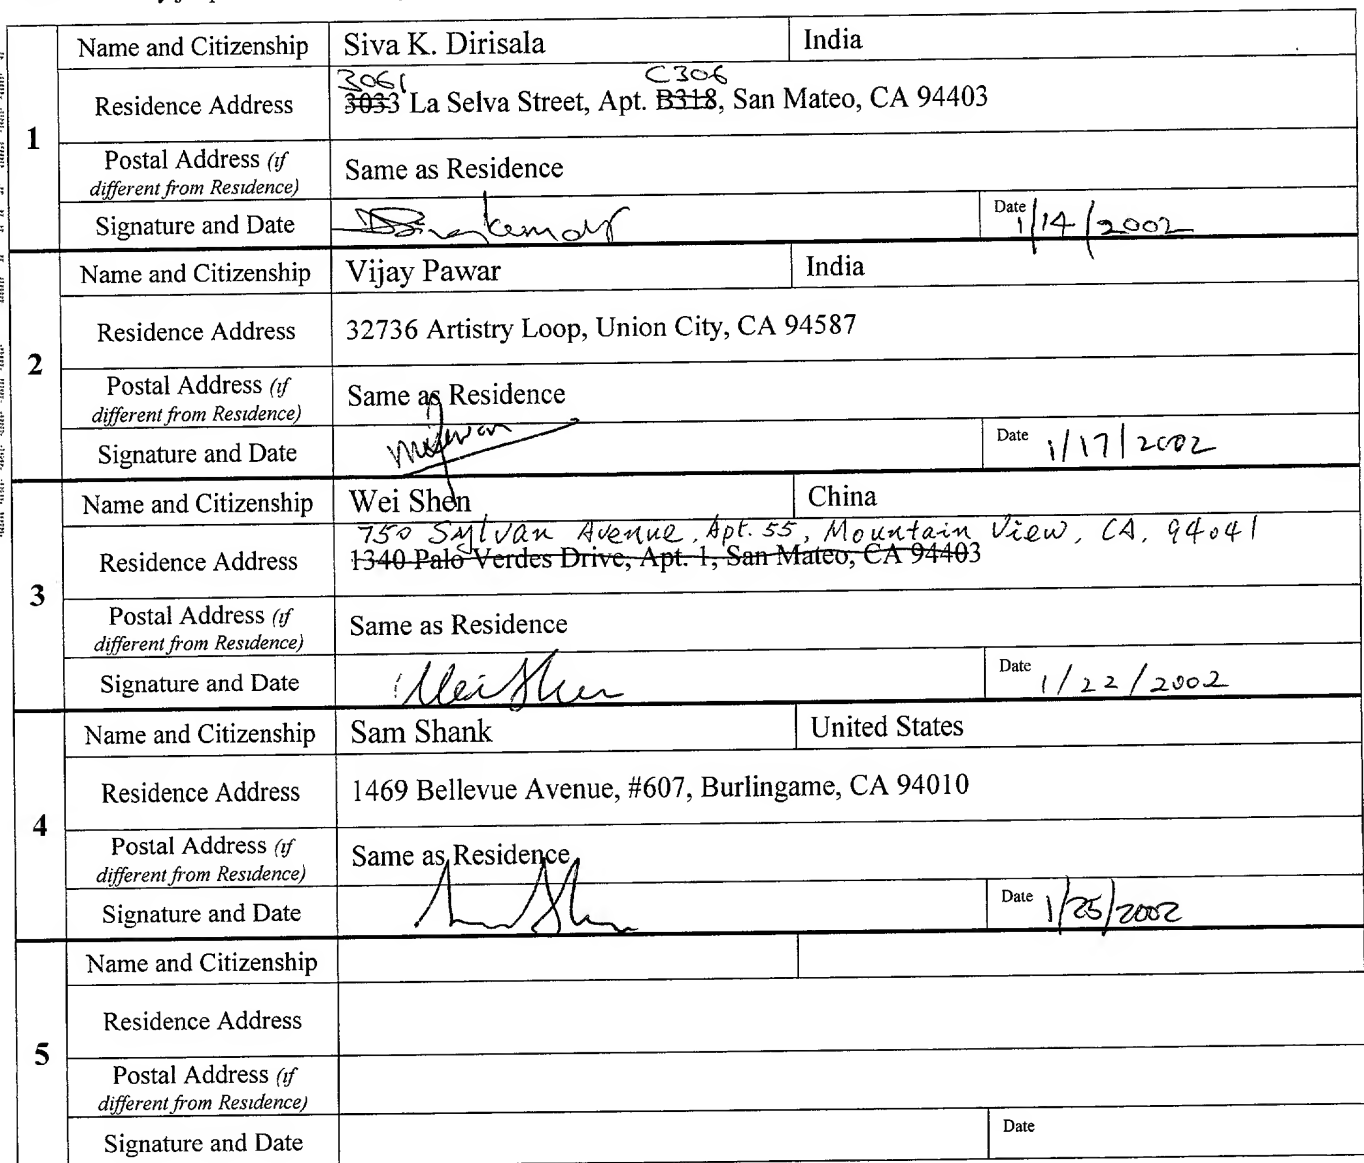 Name and Citizenship Siva K. Dirisala India
3061 C306
Residence Address 3033 La Selva Street, Apt. B318, San Mateo, CA 94403
1
Postal Address (if
different from Residence) Same as Residence
Signature and Date Date 1/14/2002
Name and Citizenship Vijay Pawar India
Residence Address 32736 Artistry Loop, Union City, CA 94587
2
Postal Address (if
different from Residence) Same as Residence
Signature and Date Date 1/17/2002
Name and Citizenship Wei Shen China
750 Sylvan Avenue, Apt. 55, Mountain View, CA, 94041
Residence Address 1340 Palo Verdes Drive, Apt. 1, San Mateo, CA 94403
3
Postal Address (if
different from Residence) Same as Residence
Signature and Date Wei Shen Date 1/22/2002
Name and Citizenship Sam Shank United States
Residence Address 1469 Bellevue Avenue, #607, Burlingame, CA 94010
4
Postal Address (if
different from Residence) Same as Residence
Signature and Date Date 1/25/2002
Name and Citizenship
Residence Address
5
Postal Address (if
different from Residence)
Signature and Date Date